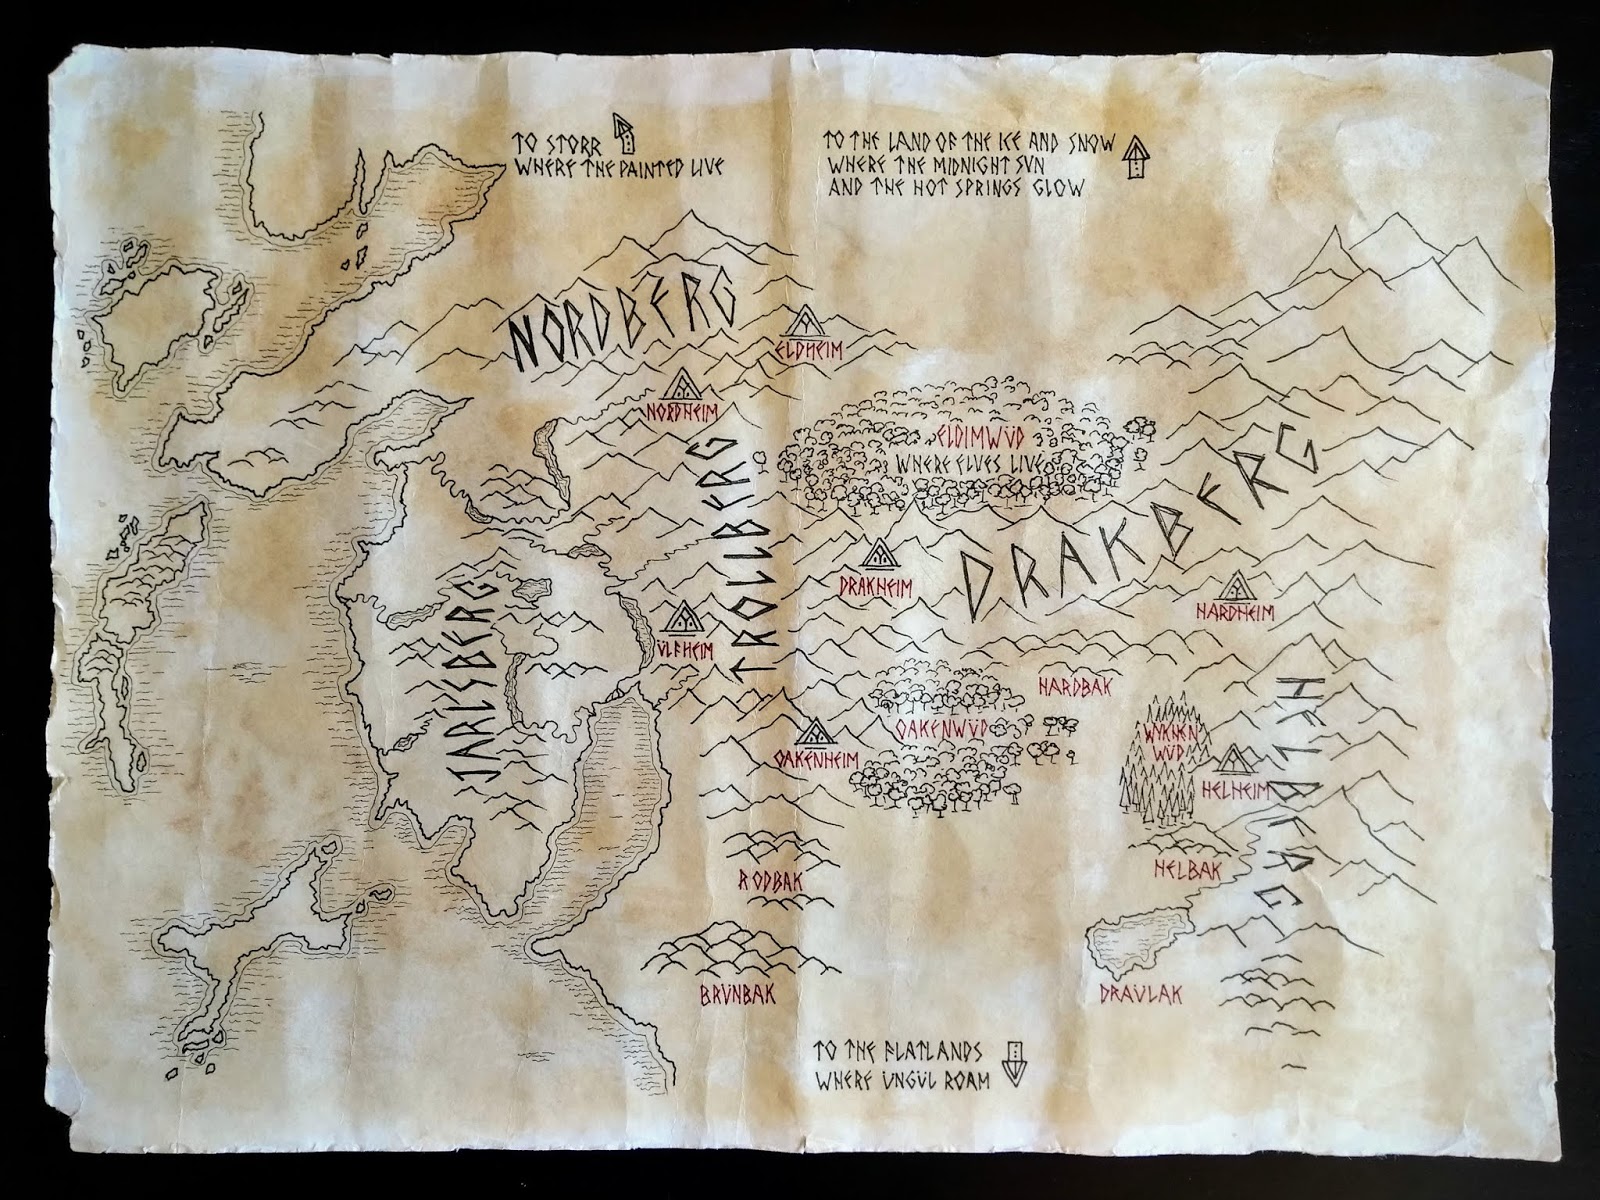 TO STORR
WHERE THE PAINTED LIVE
TO THE LAND OF THE ICE AND SNOW
WHERE THE MIDNIGHT SUN
AND THE HOT SPRINGS GLOW
NORDBERG
ELDHEIM
NORDHEIM
ELDIMWÜD
WHERE ELVES LIVE
TROLLBERG
DRAKBERG
DRAKHEIM
HARDHEIM
JARLSBERG
ÜLFHEIM
HARDBAK
OAKENWÜD
OAKENHEIM
WYKHEN
WÜD
HELHEIM
HELBERG
HELBAK
RODBAK
BRÜNBAK
DRAÜLAK
TO THE FLATLANDS
WHERE ÜNGÜL ROAM